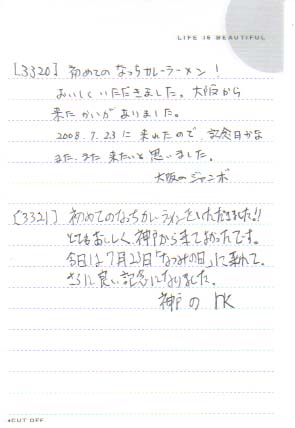 LIFE IS BEAUTIFUL
[3320] 初めてのなっちカレーラーメン!
おいしくいただきました。大阪から
来たかいがありました。
2008.7.23に来れたので、記念日かな
また、また来たいと思いました。
大阪のジャンボ
[3321] 初めてのなっちカレーラーメンをいただきました!!
とてもおいしく、神戸から来てよかったです。
今日は7月23日「なつみの日」に来れて、
さらに良い記念になりました。
神戸の
CUT OFF